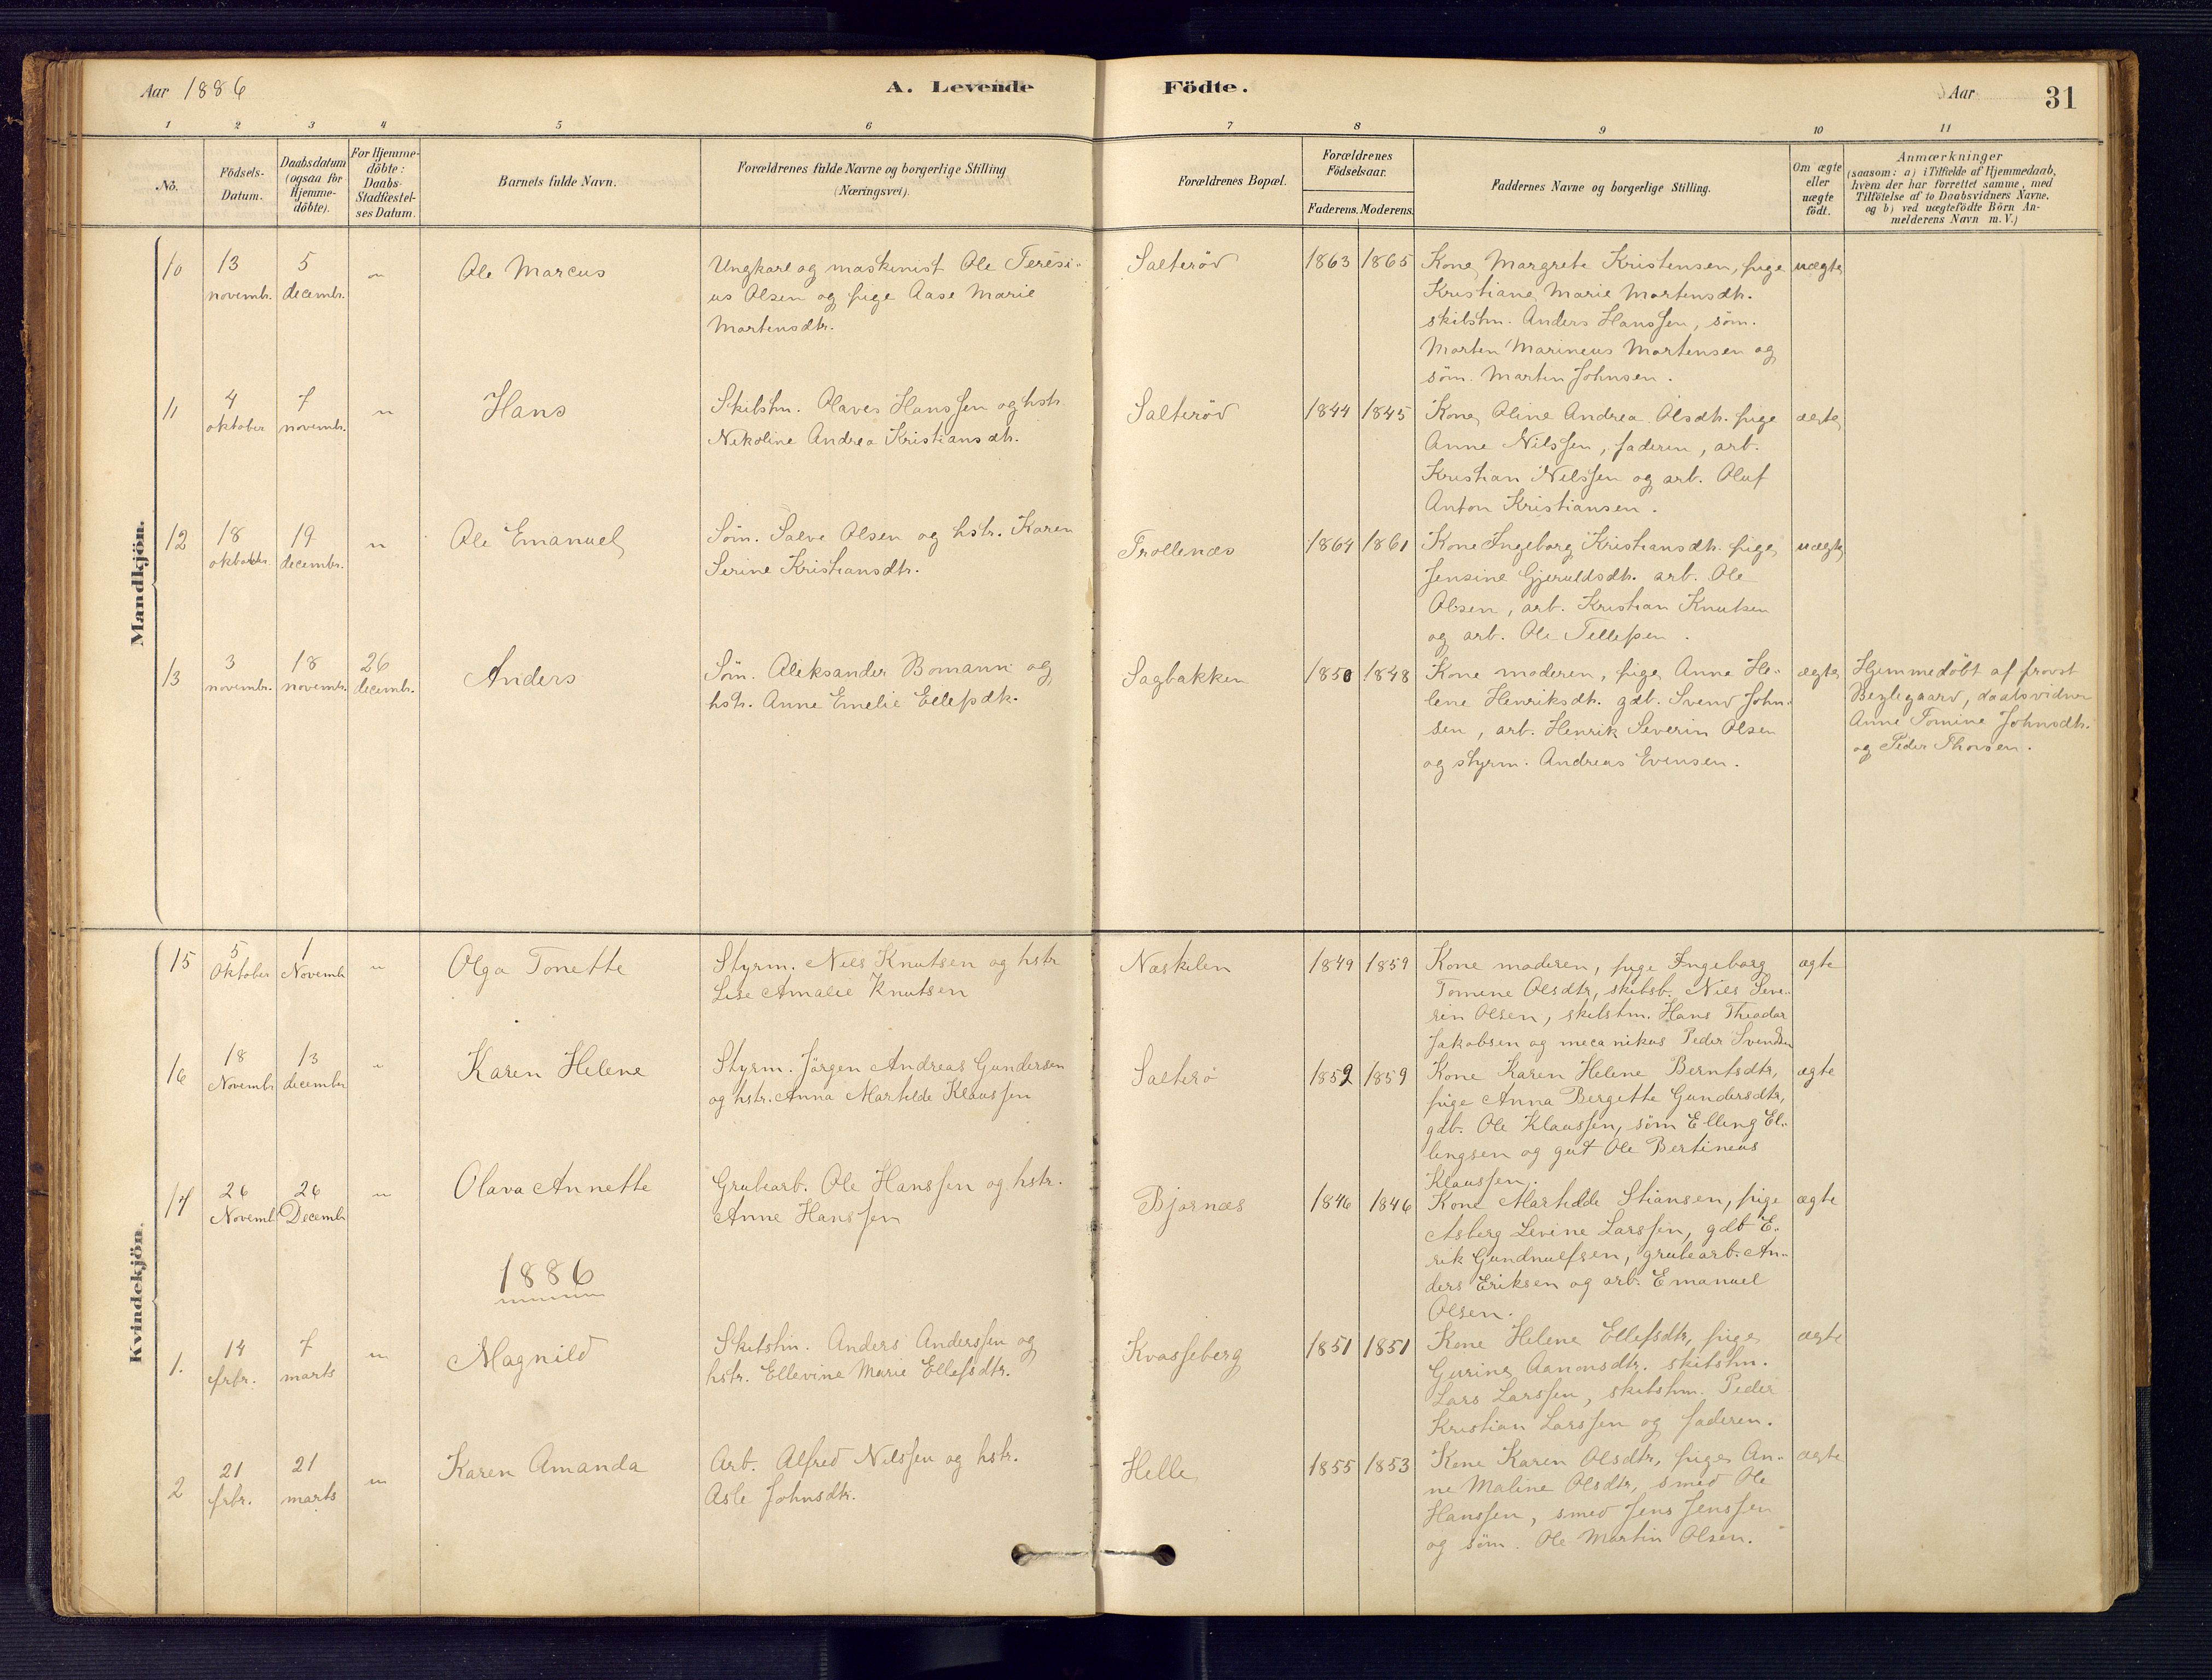 Aar 1886
A. Levende Födte.
Aar
31
1 2 3 4 5 6 7 8 9 10 11
No.
Födsels-
Datum.
Daabsdatum
(ogsaa for
Hjemme-
döbte).
For Hjemme-
döbte:
Daabs-
Stadfæstel-
ses Datum.
Barnets fulde Navn.
Forældrenes fulde Navne og borgerlige Stilling
(Næringsvei).
Forældrenes Bopæl.
Forældrenes
Födselsaar.
Faderens. Moderens.
Faddernes Navne og borgerlige Stilling.
Om ægte
eller
uægte
födt.
Anmærkninger
(saasom: a) i Tilfælde af Hjemmedaab,
hvem der har forrettet samme, med
Tilföielse af to Daabsvidners Navne,
og b) ved uægtefödte Börn An-
melderens Navn m. V.)
Mandkjön.
10
13
novembr.
5
decembr.
"
Ole Marcus
Ungkarl og maskinist Ole Terési-
us Olsen og pige Aase Marie
Martensdtr.
Salteröd
1863 1865
Kone Margrete Kristensen, pige
Kristiane Marie Martensdtr.
skibstm. Anders Hanssen, söm.
Morten Marineus Mortensen og
söm. Martin Johnsen.
uægte
11
4
oktober
7
novembr.
"
Hans
Skibstm. Olaves Hanssen og hstr.
Nikoline Andrea Kristiansdtr.
Salteröd
1844 1845
Kone Oline Andrea Olsdtr. pige
Anne Nilssen, faderen, arb.
Kristian Nilssen og arb. Oluf
Anton Kristiansen.
ægte
12
18
oktober
19
decembr.
"
Ole Emanuel
Söm. Salve Olsen og hstr. Karen
Serine Kristiansdtr.
Trollenæs
1864 1861
Kone Ingeborg Kristiansdtr. pige
Jensine Gjeruldsdtr. arb. Ole
Olsen, arb. Kristian Knutsen
og arb. Ole Tellefsen.
uægte
13
3
novembr.
18
novembr.
26
decembr.
Anders
Söm. Aleksander Bomann og
hstr. Anne Emelie Ellefsdtr.
Sagbakken
1850 1848
Kone moderen, pige Anne He-
lene Henriksdtr. gdb. Svend John-
sen, arb. Henrik Severin Olsen
og styrm. Andreas Evensen.
ægte
Hjemmedöbt af provst
daabsvidner
Anne Tomine Johnsdtr.
og Peder Thorsen.
Kvindekjön.
15
5
Oktober
1
Novembr
"
Olga Tonette
Styrm. Niels Knutsen og hstr
Lise Amalie Knutsen
Næskilen
1849 1859
Kone moderen, pige Ingeborg
Tomine Olsdtr, skibsb. Niels Seve-
rin Olsen, skibstm. Hans Theodor
Jakobsen og mecanikus Peder Svendsen
ægte
16
18
Novembr
13
december
"
Karen Helene
Styrm. Jörgen Andreas Gundersen
og hstr. Anna Martilde Klaussen
Salterö
1852 1859
Kone Karen Helene Berntsdtr,
pige Anna Bergette Gundersdtr,
gdb. Ole Klaussen, söm Elling El-
lingsen og gut Ole Bertineus
Klaussen.
ægte
17
26
Novembr
26
Decembr
"
Olava Annette
Grubearb. Ole Hanssen og hstr.
Anne Hanssen
Bjornæs
1846 1846
Kone Martilde Stiansen, pige
Asberg Levine Larssen, gdb E-
rik Gundnulfsen, grubearb. An-
ders Eriksen og arb. Emanuel
Olsen.
ægte
1886
1.
14
frbr.
7
marts
"
Magnild
Skibstm. Anders Anderssen og
hstr. Ellevine Marie Ellefsdtr.
Kvasseberg
1851 1851
Kone Helene Ellefsdtr, pige
Gurine Aanonsdtr. skibstm.
Lars Larssen, skibstm. Peder
Kristian Larssen og faderen.
ægte
2
21
frbr.
21
marts
"
Karen Amanda
Arb. Alfred Nilssen og hstr.
Asle Johnsdtr.
Helle
1855 1853
Kone Karen Olsdtr, pige An-
ne Maline Olsdtr, smed Ole
Hanssen, smed Jens Jenssen
og söm. Ole Martin Olsen.
ægte